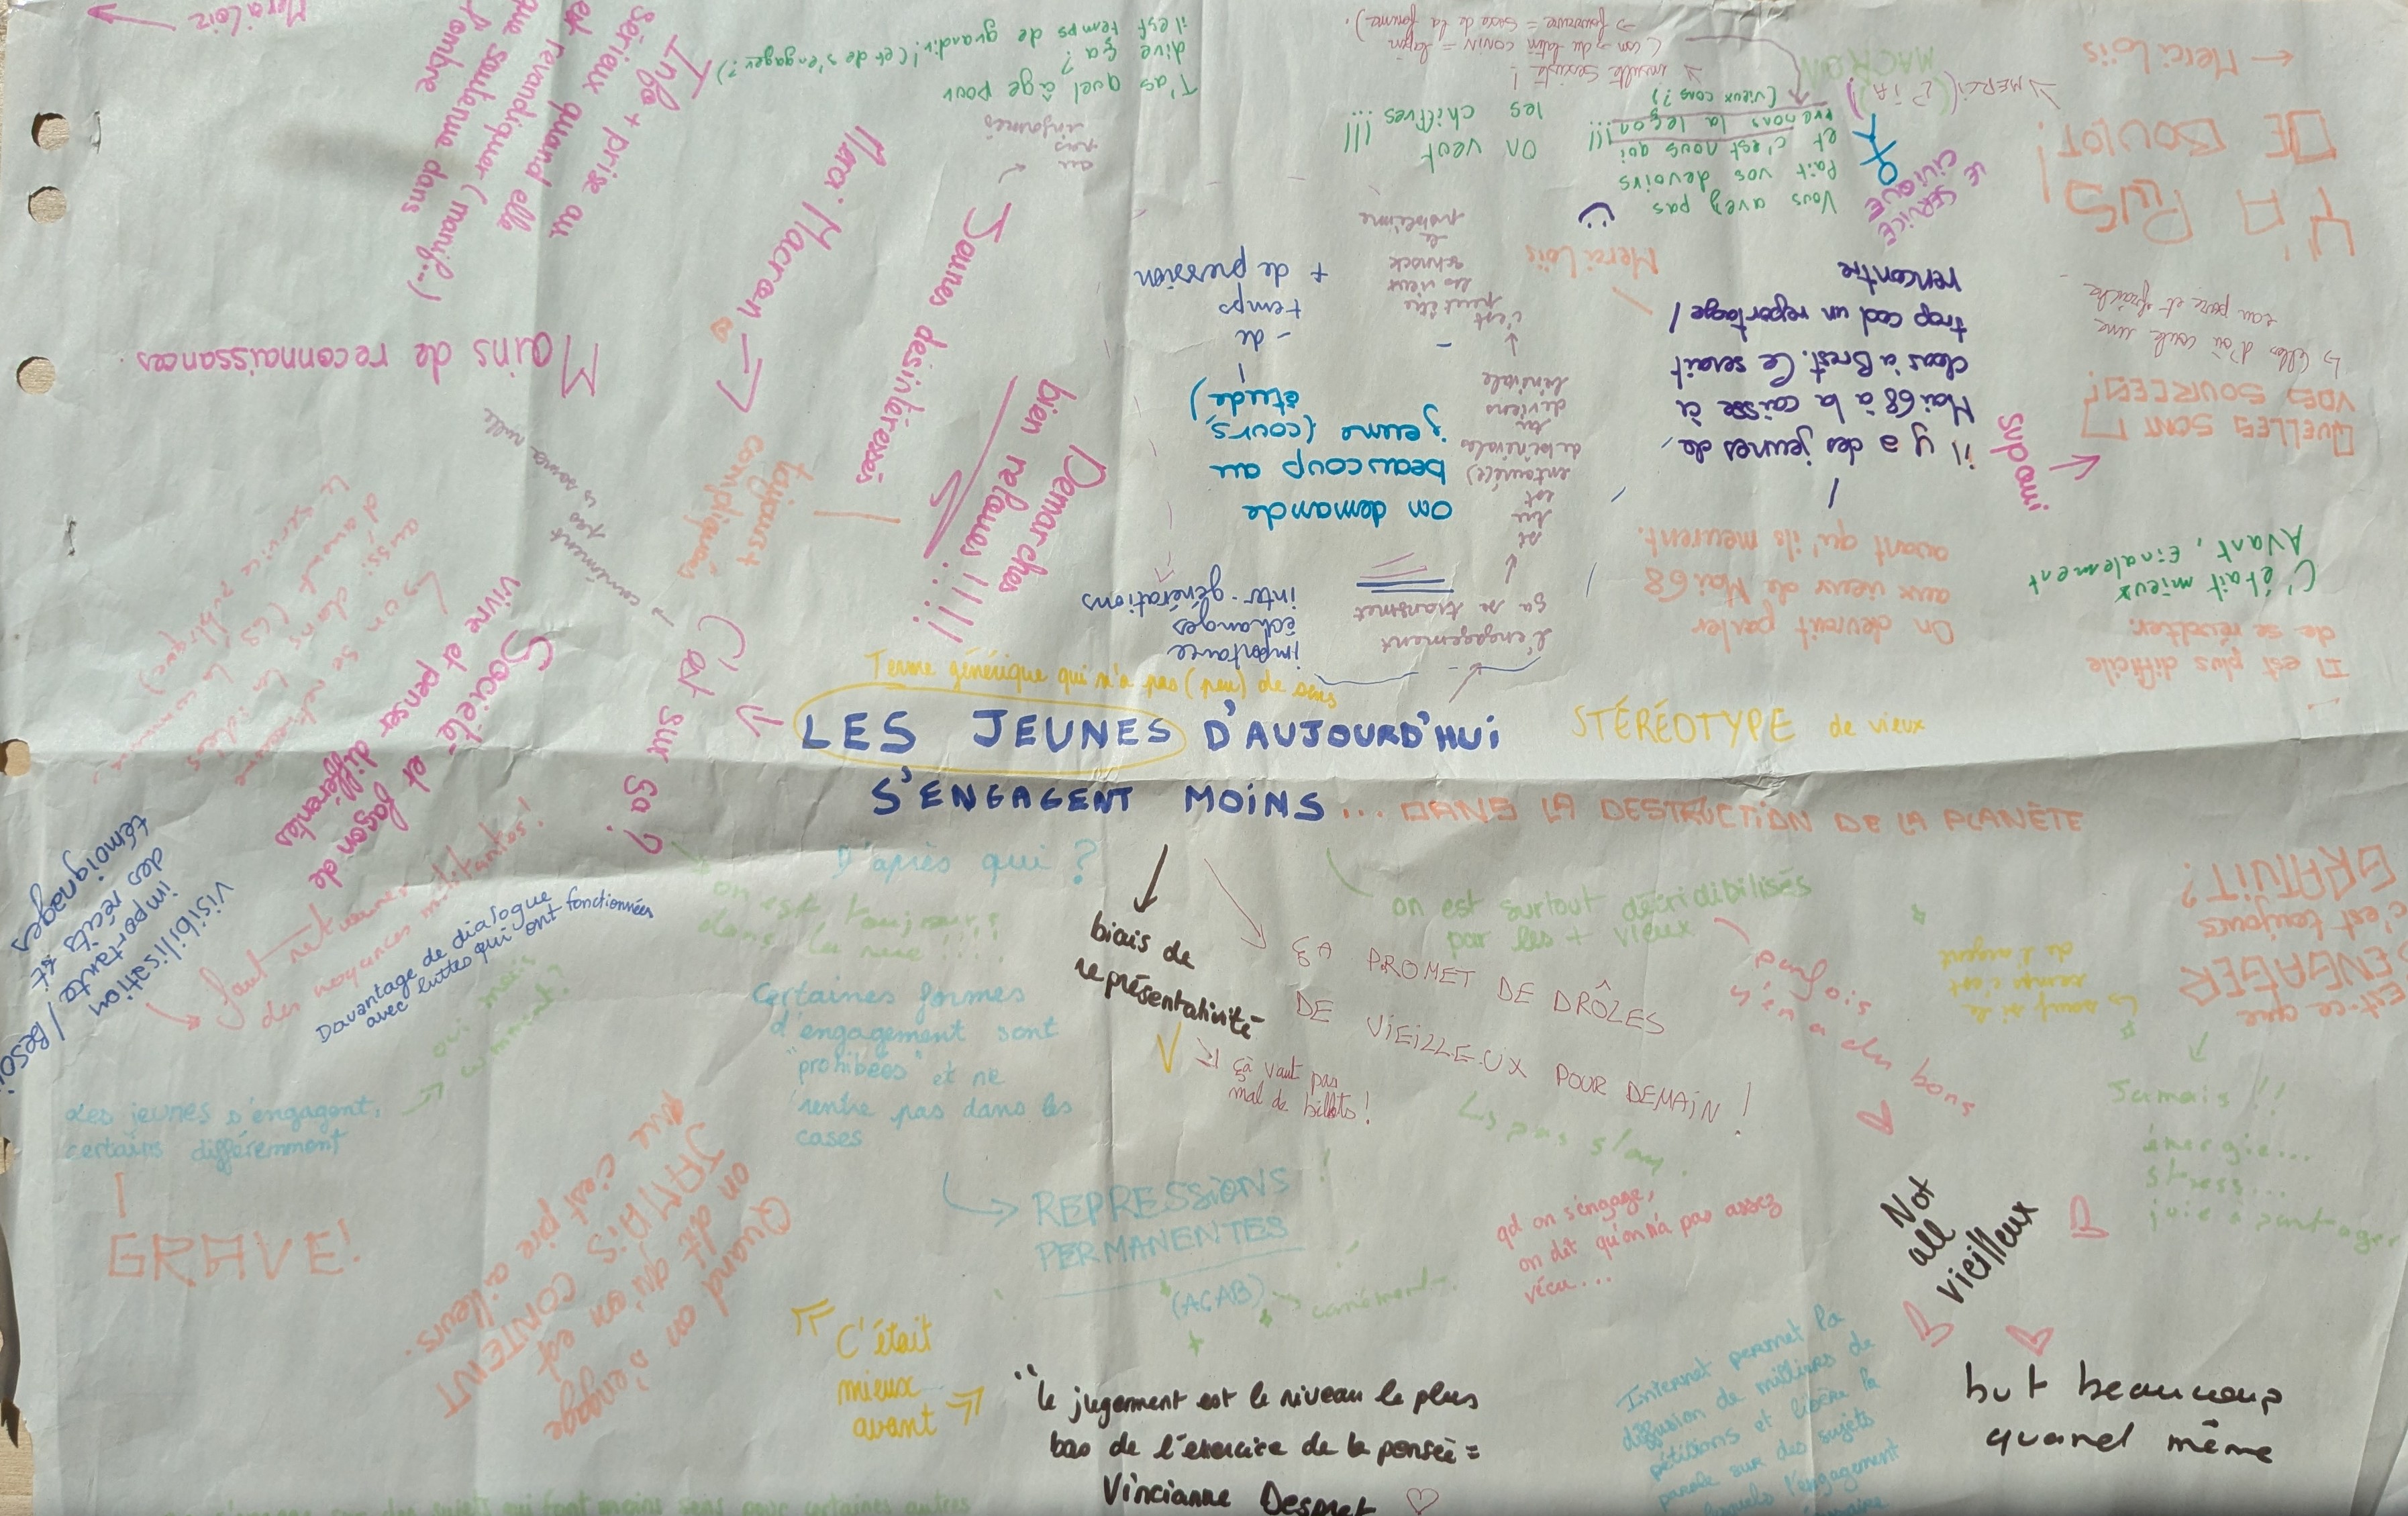 LES JEUNES D'AUJOURD'HUI
S'ENGAGENT MOINS
... DANS LA DESTRUCTION DE LA PLANÈTE
Terme générique qui n'a pas (peu) de sens
STÉRÉOTYPE de vieux
D'après qui ?
on est toujours
dans la rue !!!!
biais de
représentativité
çà vaut pas
mal de billets !
ÇA PROMET DE DRÔLES
DE VIEILLE.UX POUR DEMAIN !
Ls pas slay.
on est surtout décridibilisés
par les + vieux
parfois
y'en a des bons
Not
all
vieilleux
but beaucoup
quand même
qd on s'engage,
on dit qu'on n'a pas assez
vécu....
Certaines formes
d'engagement sont
"prohibées" et ne
rentre pas dans les
cases
REPRESSIONS
PERMANENTES
(ACAB)
carrément
C'était
mieux
avant
"le jugement est le niveau le plus
bas de l'exercice de la pensée =
Vincianne Despret
Internet permet la
diffusion de milliers de
pétitions et libère la
parole sur des sujets
l'engagement
Les jeunes s'engagent,
certains différemment
GRAVE !
oui mais
comment ?
Quand on s'engage
on dit qu'on est
JAMAIS CONTENT
que c'est pire ailleurs.
Davantage de dialogue
avec luttes qui ont fonctionnées
faut retrouver
des noyances militantes !
visibilisation
importante / Besoin
des récits et
témoignages
Société et façon de
vivre et penser différentes
C'est sur ça ?
sujets qui font moins sens pour certaines autres
Est-ce que
S'ENGAGER
c'est toujours
GRATUIT ?
Ls sauf si le
temps c'est
de l'argent
Jamais !!
énergie...
stress...
joie à partager
Il est plus difficile
de se révolter.
C'était mieux
Avant, Finalement
On devrait parler
aux vieux de Mai 68
avant qu'ils meurent.
il y a des jeunes de
Mai 68 à la caisse à
clous à Brest. Ce serait
trop cool un reportage !
rencontre
QUELLES SONT
VOS SOURCES ?
Ls Celles d'où coule une
eau pure et fraîche
supomi
Y'A PLUS
DE BOULOT !
← Merci Loïs
LE SERVICE
CIVIQUE
MERCI (PIA)
MACRON
Merci Loïs
Vous avez pas
fait vos devoirs
et c'est nous qui
prenons la leçon !!!
(vieux cons ?)
insulte sexiste !
(con → du latin CONIN = lapin
→ fourrure = sexe de la femme).
on veut
les chiffres !!!
l'engagement
ça se transmet
si
tu
est
entouré(e)
de bénévoles
tu
deviens
bénévole
c'est
peut être
les vieux
schnock
le
problème
importance
échanges
inter-générations
on demande
beaucoup au
jeune (cours,
étude)
- de
temps
+ de pression
Démarches
bien relous !!!!!
toujours +
compliqués
Jeunes desintéressés
au
pays
informés
T'as quel âge pour
dire ça ?
il est temps de grandir ! (et de s'engager ?)
Merci Macron
Moins de reconnaissances.
Info + prise au
sérieux quand elle
est revendiquer (manif...)
que soutenue dans
l'ombre
Merci Loïz